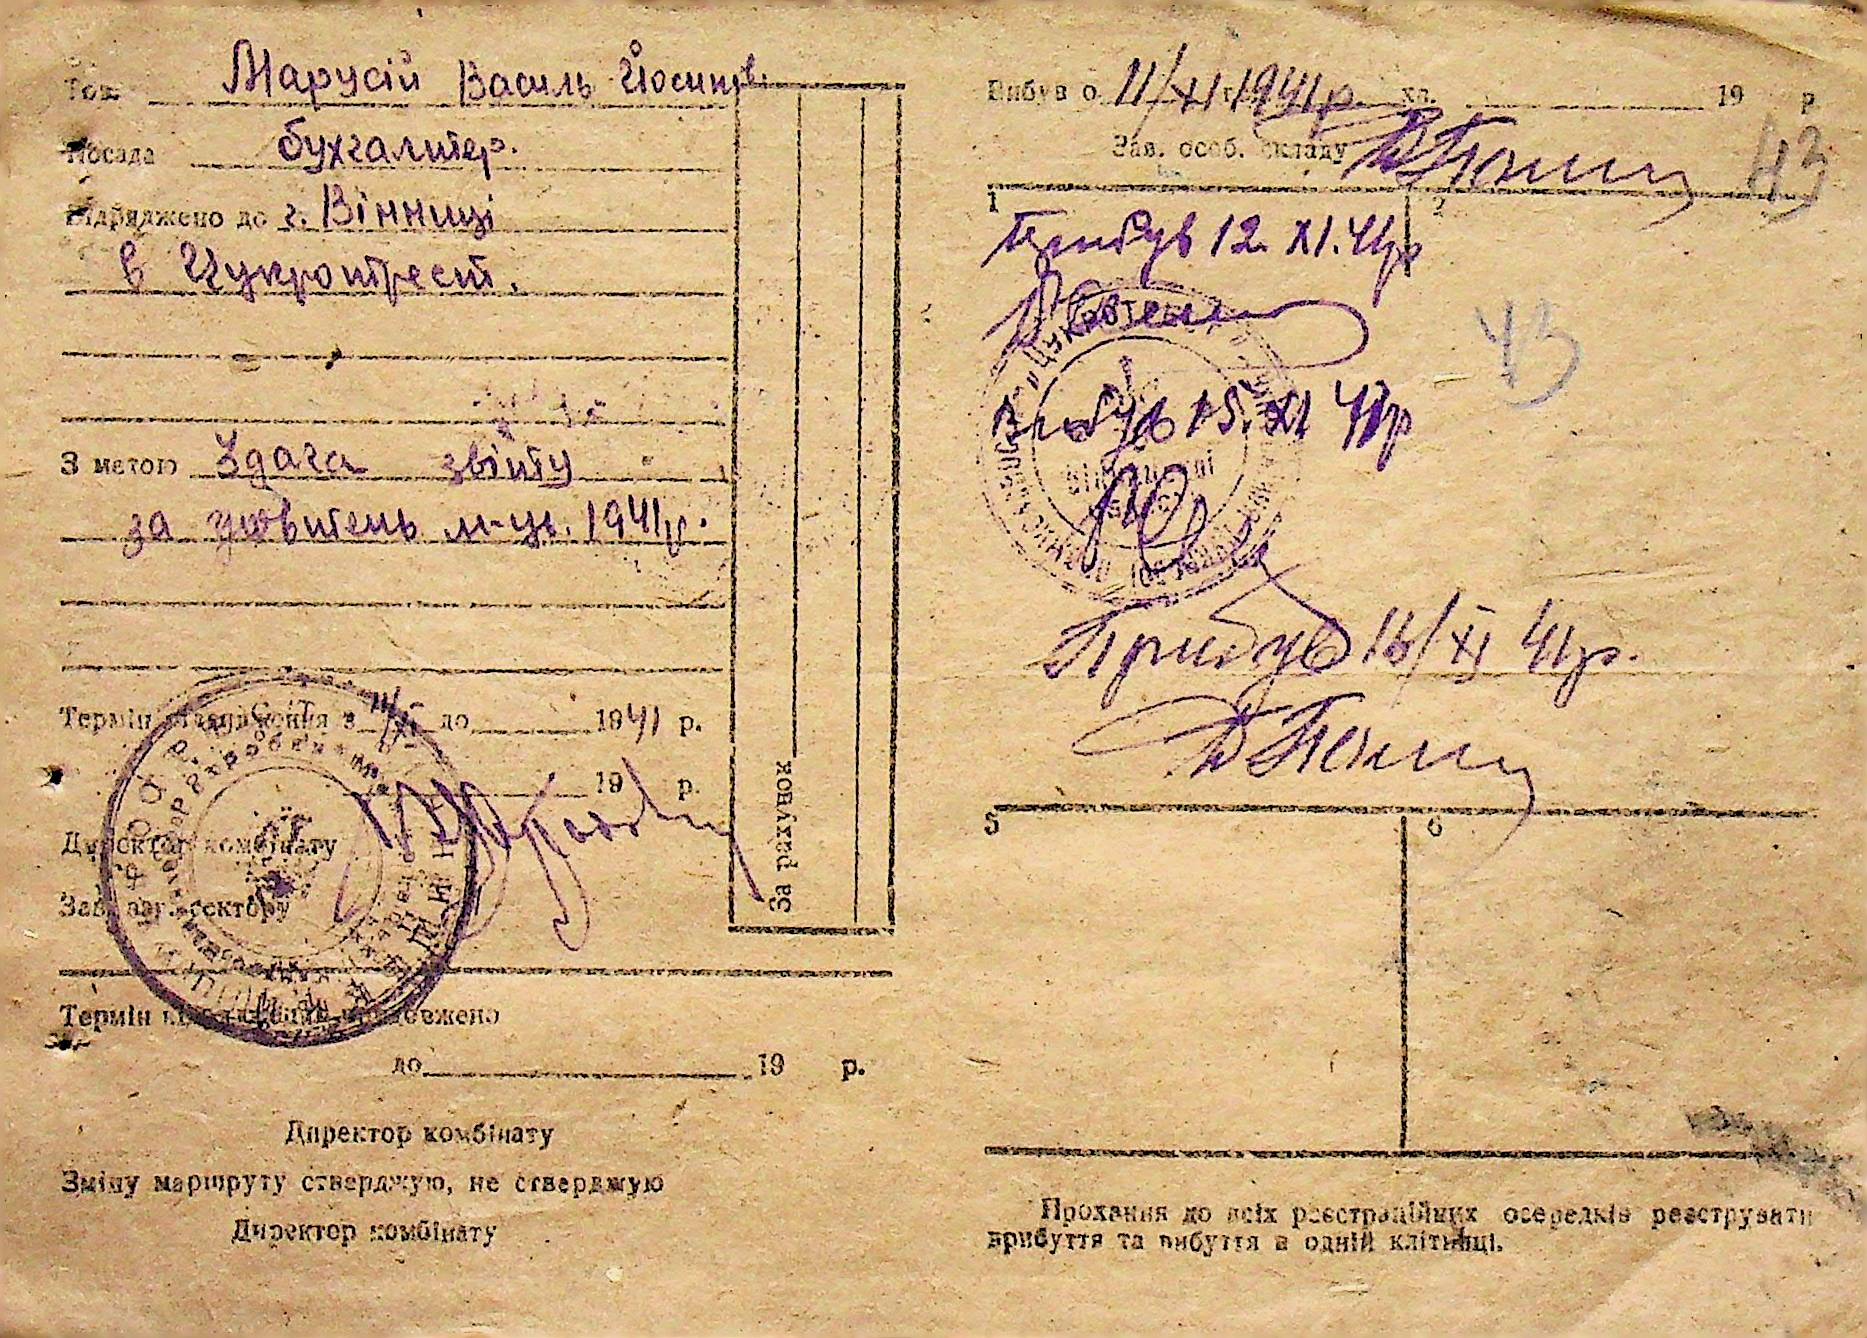 Тов. Марусій Василь Йосипов.
Посада бухгалтер.
Відряджено до г. Вінниці
в Цукротрест.
З метою Здача звіту
за жовтень м-ць. 1941р.
Термін відрядження з 11/XI до 1941 р.
19 р.
Директор комбінату
Зав. сектору
За рахунок
Термін продовжено
до 19 р.
Директор комбінату
Зміну маршруту стверджую, не стверджую
Директор комбінату
Вибув о 11/XI 1941р. 19 р
Зав. особ. складу
43
1 2
Прибув 12. XI. 41р
43
Вибув 15. XI 41р
Прибув 16/XI 41р.
5 6
Прохання до всіх реєстраційних осередків реєструвати
прибуття та вибуття в одній клітинці.